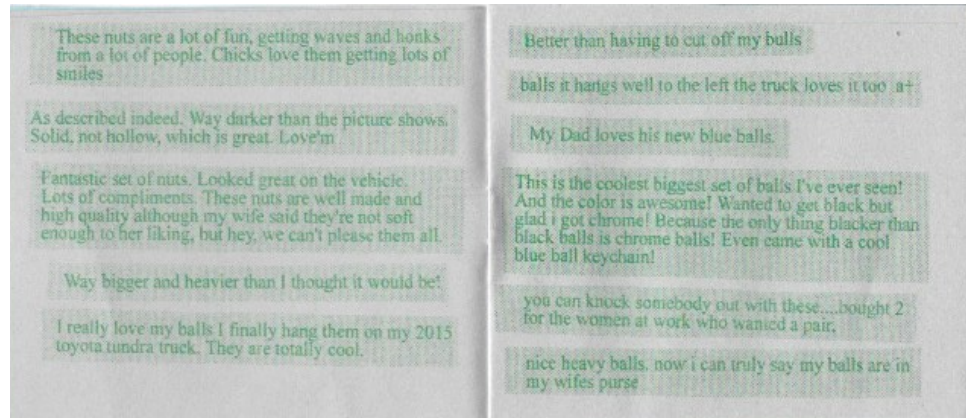 These nuts are a lot of fun, getting waves and honks
from a lot of people. Chicks love them getting lots of
smiles
As described indeed. Way darker than the picture shows.
Solid, not hollow, which is great. Love'm
Fantastic set of nuts. Looked great on the vehicle.
Lots of compliments. These nuts are well made and
high quality although my wife said they're not soft
enough to her liking, but hey, we can't please them all.
Way bigger and heavier than I thought it would be!
I really love my balls I finally hang them on my 2015
toyota tundra truck. They are totally cool.
Better than having to cut off my bulls
balls it hangs well to the left the truck loves it too a+
My Dad loves his new blue balls.
This is the coolest biggest set of balls I've ever seen!
And the color is awesome! Wanted to get black but
glad i got chrome! Because the only thing blacker than
black balls is chrome balls! Even came with a cool
blue ball keychain!
you can knock somebody out with these....bought 2
for the women at work who wanted a pair.
nice heavy balls. now i can truly say my balls are in
my wifes purse